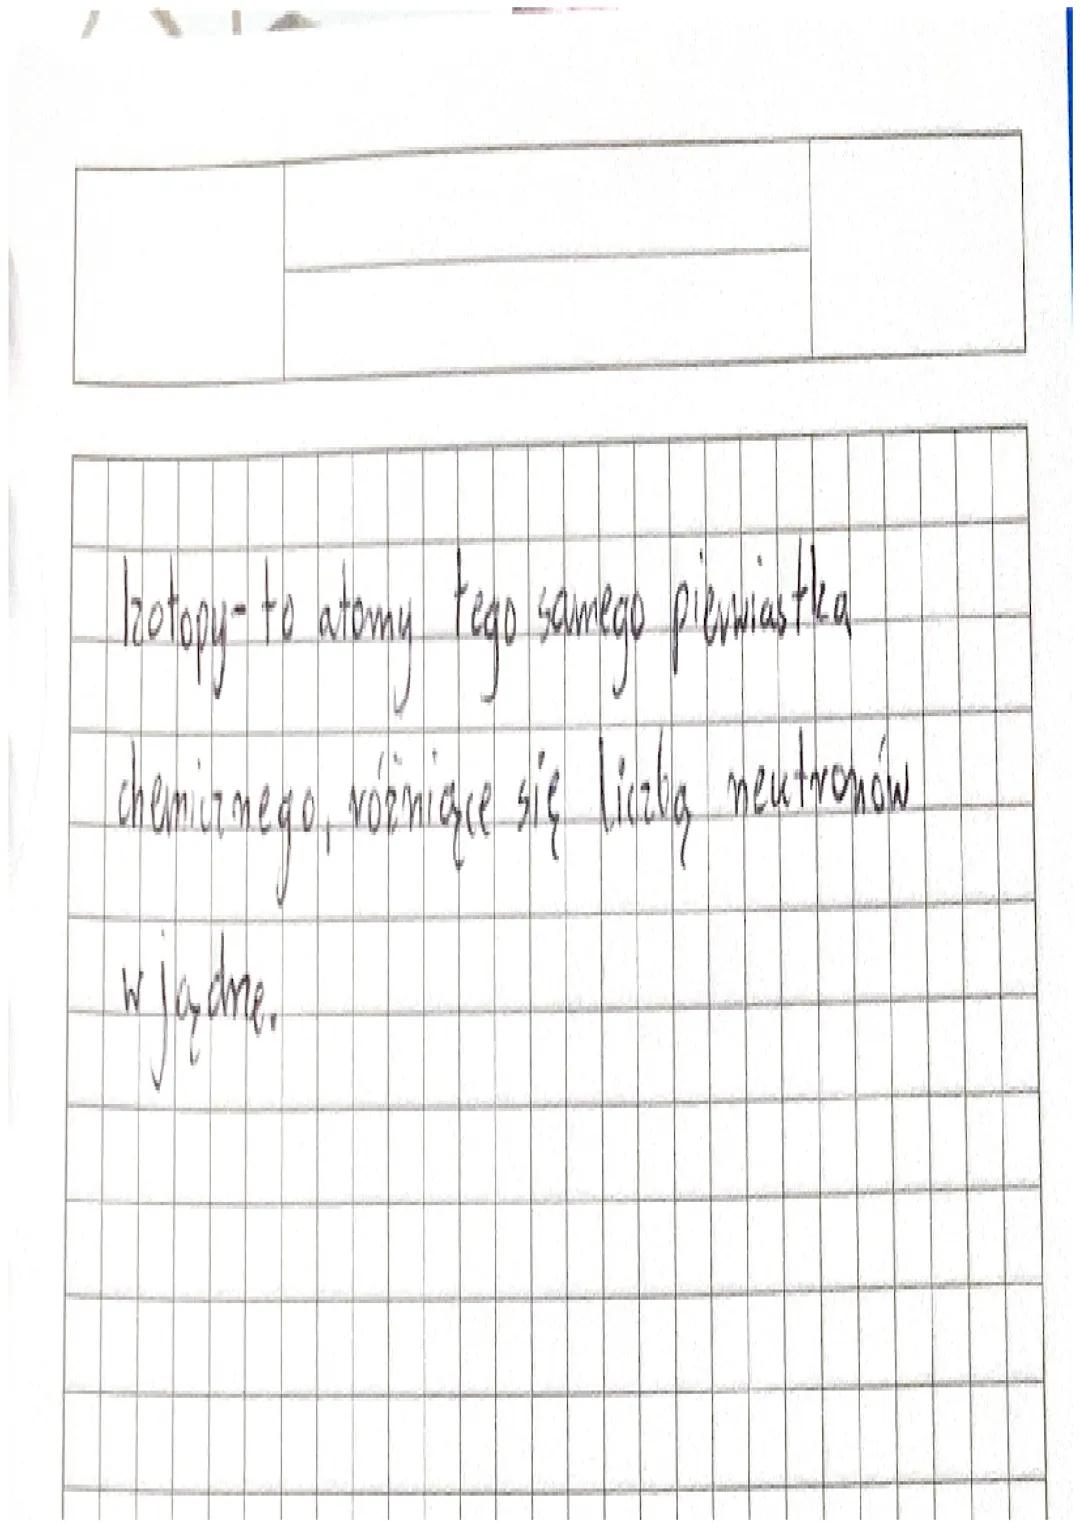 Izotopy- to atomy tego samego pierwiastka
chemicznego, różniące się liczbą neutronów
w jądrze.